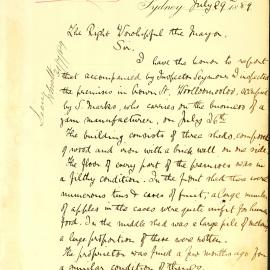 Sydney July 29th 1889
The Right Worshipful the Mayor.
Sir,
I have the honor to report
that accompanied by Inspector Seymour I inspected
the premises in Crown St. Woolloomooloo, occupied
by S. Marks, who carries on the business of a
jam manufacturer, on July 26th
The building consists of three sheds, composed
of wood and iron with a brick wall on one side.
The floor of every part of the premises was in
a filthy condition. In the front shed there were
numerous tins & cases of fruit; a large number
of apples in the cases were quite unfit for human
food. In the middle shed was a large pile of melons
a large proportion of these were rotten.
The proprietor was fined a few months ago for
a similar condition of things.